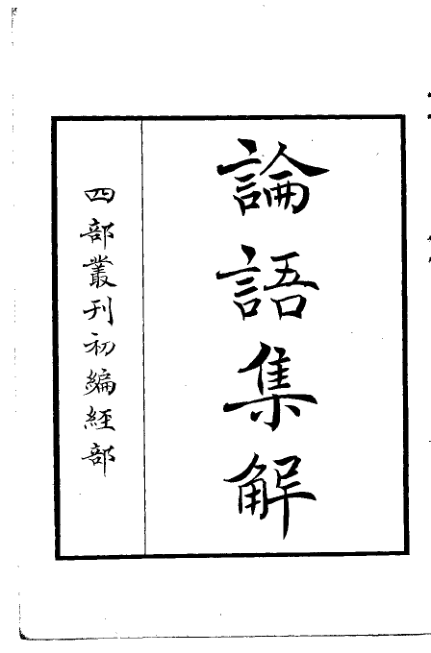 論語集解
四部叢刊初編經部